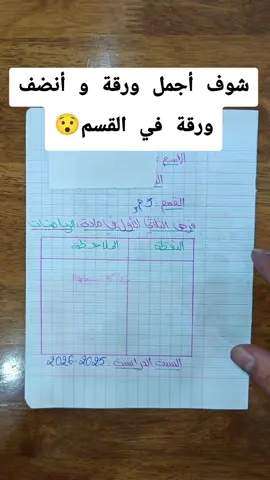 شوف أجمل ورقة و أنضف
ورقة في القسم😯
الاسم :
القسم :
فرض الثلاثي الأول في مادة الرياضيات
النقطة
الملاحظة
السنة الدراسية : 2025-2026